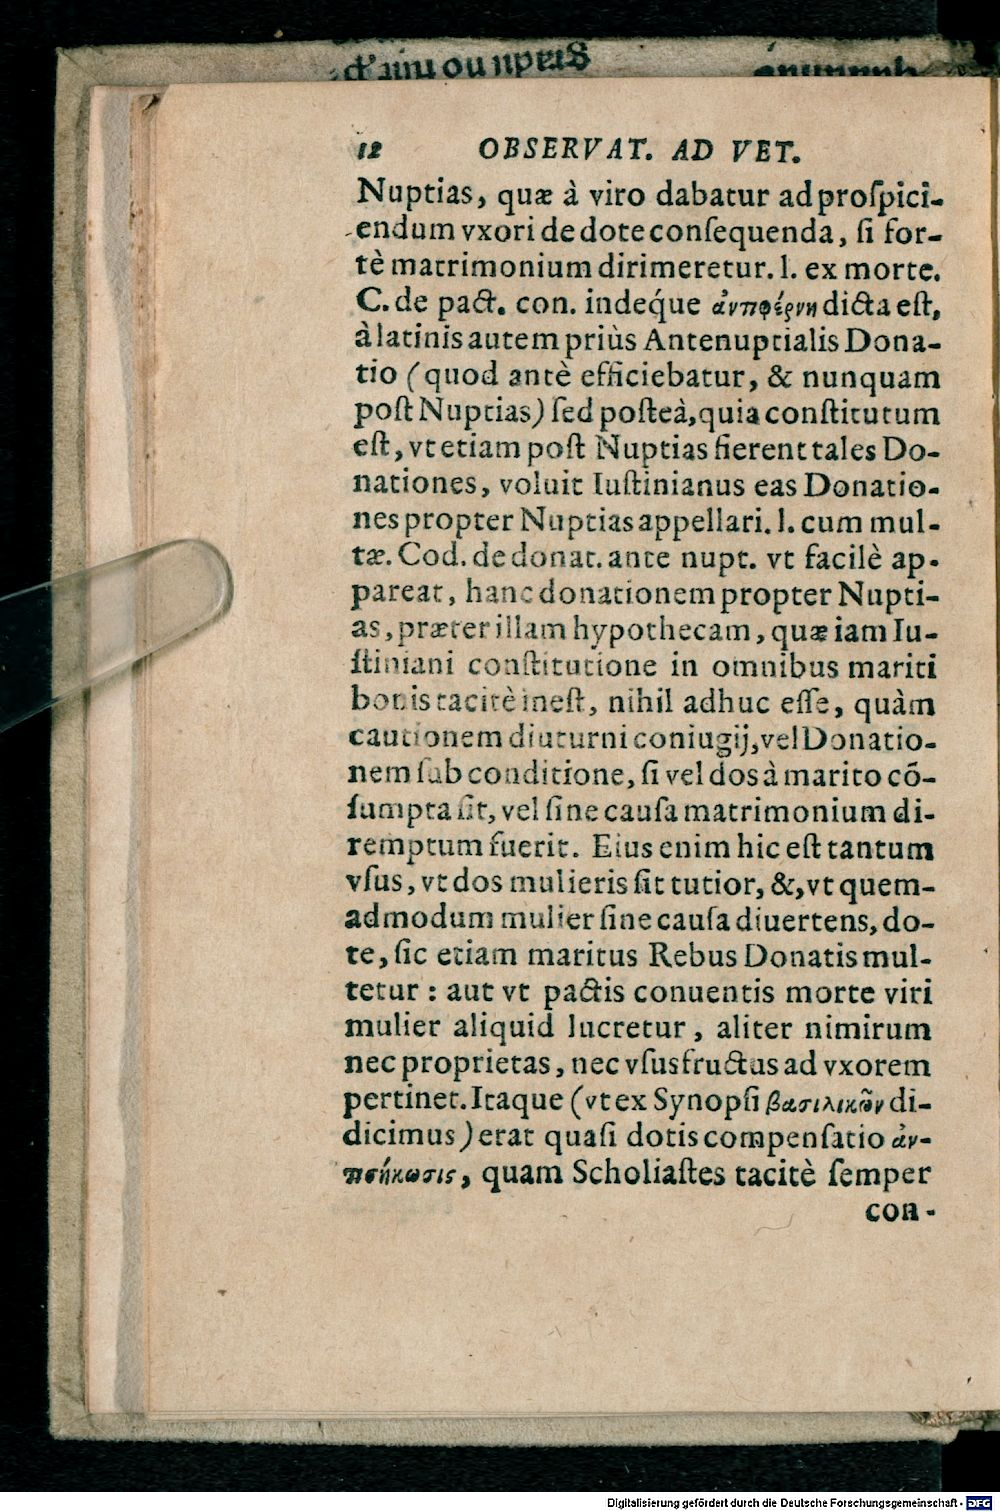 12 OBSERVAT. AD VET.
Nuptias, quæ à viro dabatur ad proſpici-
endum vxori de dote conſequenda, ſi for-
tè matrimonium dirimeretur. l. ex morte.
C. de pact. con. indéque ἀντιφέρνη dicta eſt,
à latinis autem priùs Antenuptialis Dona-
tio (quod antè efficiebatur, & nunquam
poſt Nuptias) ſed poſteà, quia conſtitutum
eſt, vt etiam poſt Nuptias fierent tales Do-
nationes, voluit Iuſtinianus eas Donatio-
nes propter Nuptias appellari. l. cum mul-
tæ. Cod. de donat. ante nupt. vt facilè ap-
pareat, hanc donationem propter Nupti-
as, præter illam hypothecam, quæ iam Iu-
ſtiniani conſtitutione in omnibus mariti
bonis tacitè ineſt, nihil adhuc eſſe, quàm
cautionem diuturni coniugij, vel Donatio-
nem ſub conditione, ſi vel dos à marito cõ-
ſumpta ſit, vel ſine cauſa matrimonium di-
remptum fuerit. Eius enim hic eſt tantum
vſus, vt dos mulieris ſit tutior, &, vt quem-
admodum mulier ſine cauſa diuertens, do-
te, ſic etiam maritus Rebus Donatis mul-
tetur : aut vt pactis conuentis morte viri
mulier aliquid lucretur, aliter nimirum
nec proprietas, nec vſusfructus ad vxorem
pertinet. Itaque (vt ex Synopſi βασιλικῶν di-
dicimus) erat quaſi dotis compenſatio ἀν-
τισήκωσις, quam Scholiaſtes tacitè ſemper
con-
Digitalisierung gefördert durch die Deutsche Forschungsgemeinschaft - DFG